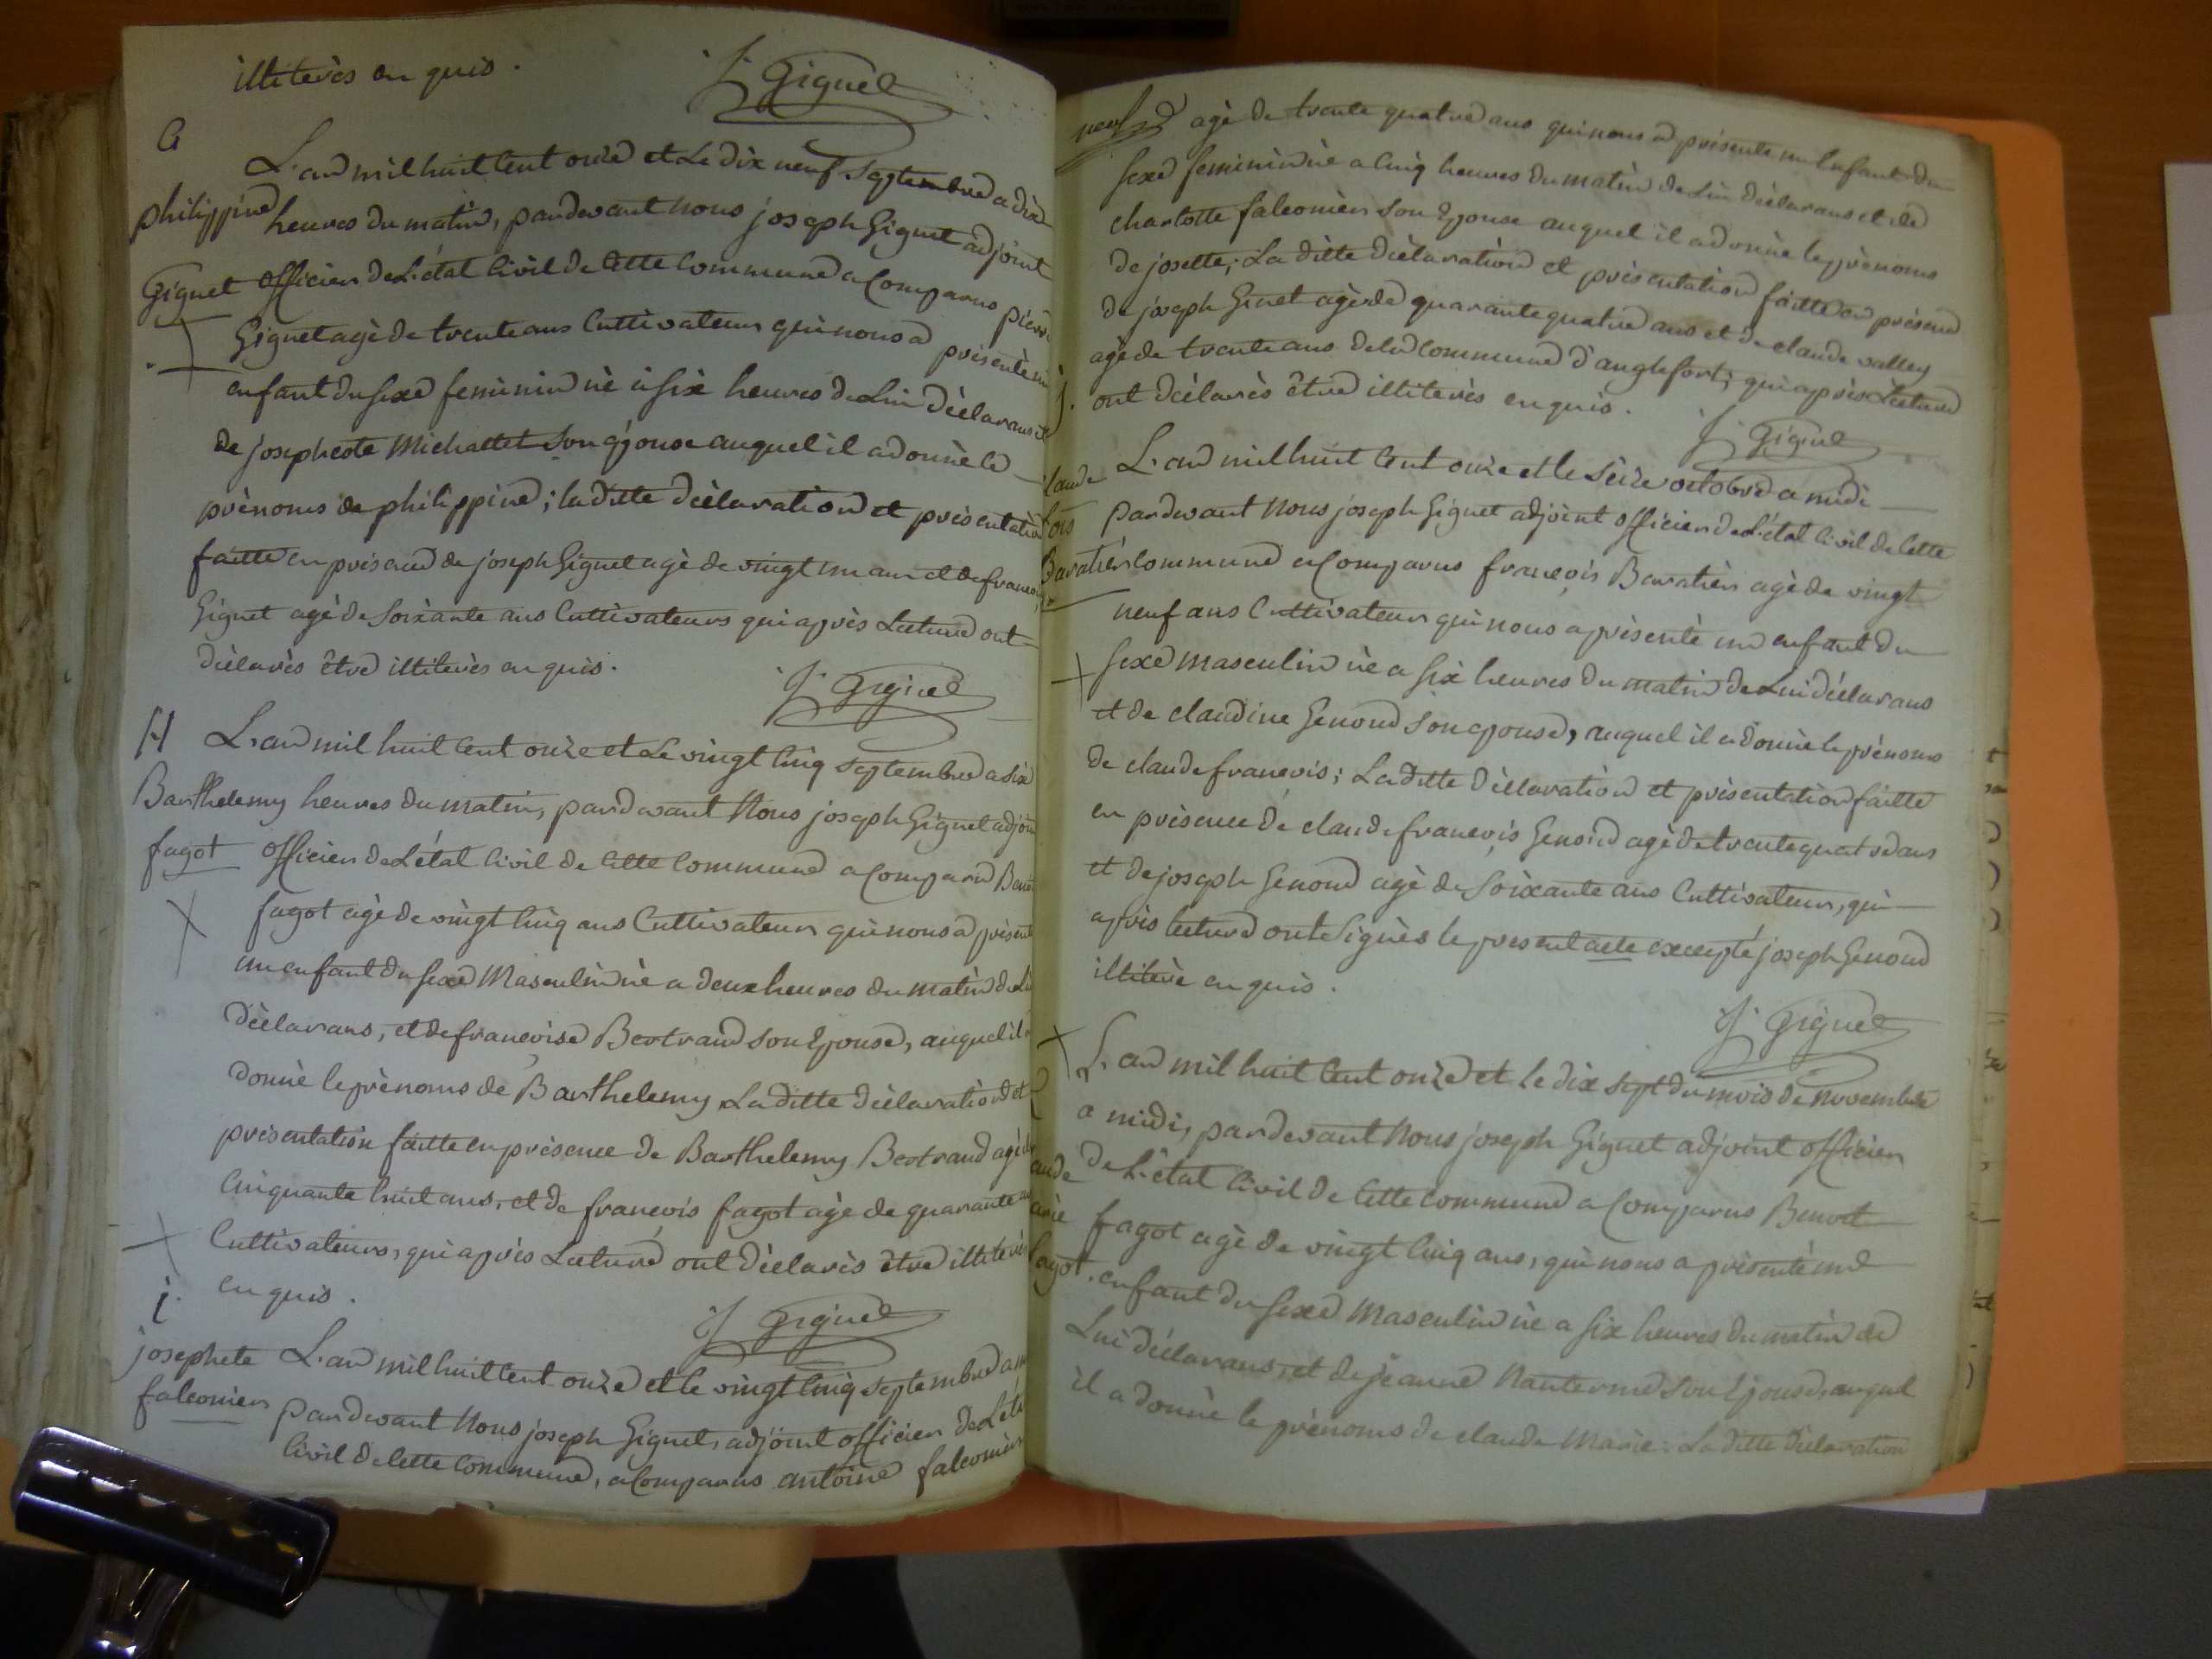 illiterès en quis.
J. Giguet
G
L'an mil huit Cent onze et Le dix neuf Septembre a dix
philippine heures du matin, pardevant nous joseph Giguet adjoint
Giguet Officier de L'état Civil de Cette Commune a Comparus pierre
Giguet agè de trente ans Cultivateur qui nous a présentè un
enfant du sexe feminin nè à six heures de Lui dèclarans et
de josephete Michallet son epouse auquel il a donnè le
prènoms de philippine; la ditte dèclaration et prèsentation
faitte en prèsence de joseph Giguet agè de vingt un ans et de francois
Giguet agè de Soixante ans Cultivateurs qui après Lecture ont
dèclarès être illiterès en quis.
J. Giguet
H
L'an mil huit Cent onze et Le vingt Cinq Septembre a six
Barthelemy heures du matin, pardevant Nous joseph Giguet adjoin
fagot Officier de L'état Civil de Cette Commune a Comparu Benoit
fagot agè de vingt Cinq ans Cultivateur qui nous a présenté
un enfant du sexe Masculin nè a deux heures du matin de Lui
dèclarans, et de francoise Bertrand son Epouse, auquel il a
donnè le prènoms de Barthelemy La ditte dèclaration et
prèsentation faitte en prèsence de Barthelemy Bertrand agè de
Cinquante huit ans, et de françois fagot agè de quarante ans
Cultivateurs, qui après Lecture ont dèclarès être illiterès
en quis.
J. Giguet
j.
josephete L'an mil huit Cent onze et le vingt Cinq Septembre a m
falconier pardevant Nous joseph Giguet, adjoint officier de L'éta
Civil de Cette Commune, a Comparus antoine falconier
neuf agè de trente quatre ans qui nous a prèsentè un Enfant du
sexe feminin nè a Cinq heures du matin de Lui dèclarans et de
charlotte falconier son Epouse auquel il a donnè le prènoms
de josette; La ditte dèclaration et prèsentation faitte en prèsence
de joseph Ginet agè de quarante quatre ans et de claude valley
agè de trente ans de la Commune d'anglefort; qui après Lecture
j. ont dèclarès être illiterès en quis.
J. Giguet
laude L'an mil huit Cent onze et le Seize octobre a midi
çois pardevant Nous joseph Giguet adjoint officier de L'état Civil de Cette
Baratier Commune a Comparus françois Baratier agè de vingt
neuf ans Cultivateur qui nous a prèsentè un enfant du
sexe masculin nè a six heures du matin de Lui dèclarans
et de claudine Genond son epouse, auquel il a donnè le prènoms
de claude françois; La ditte dèclaration et prèsentation faitte
en prèsence de claude françois Genond agè de trente quatre ans
et de joseph Genond agè de Soixante ans Cultivateur, qui
après lecture ont Signès le present acte excepté joseph Genond
illiterè en quis.
J. Giguet
L'an mil huit Cent onze et le dix sept du mois de Novembre
a midi, pardevant Nous joseph Giguet adjoint officier
aude de L'état Civil de Cette Commune a Comparus Benoit
arie fagot agè de vingt Cinq ans, qui nous a prèsentè une
fagot. enfant du sexe Masculin nè a six heures du matin de
Lui dèclarans, et de jeanne Nanterme son Epouse, auquel
il a donnè le prènoms de claude Marie: La ditte dèclaration